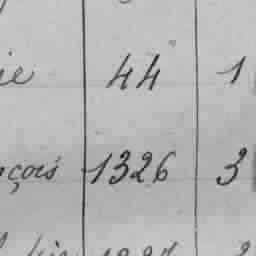 ie 44 1
nçois 1326 3